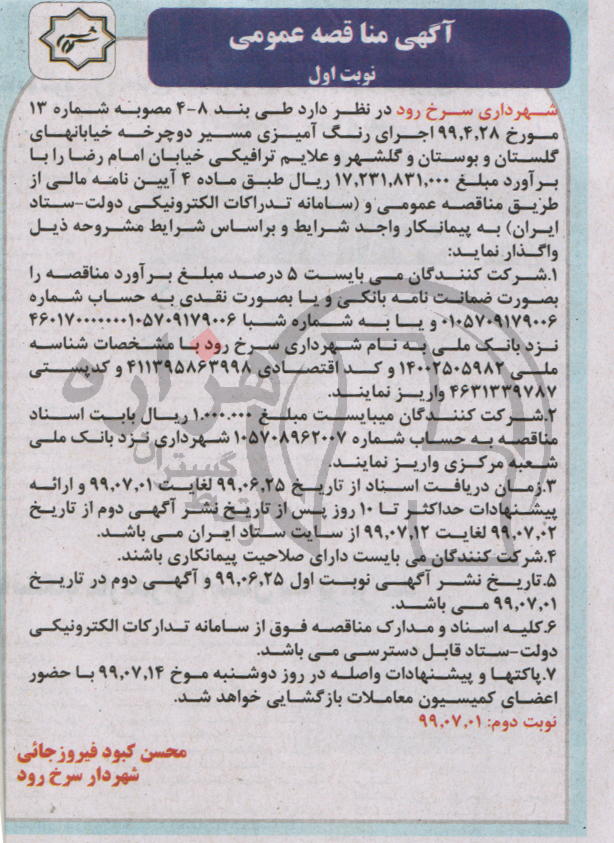 آگهی مناقصه عمومی
نوبت اول
شهرداری سرخ رود در نظر دارد طی بند ۸-۴ مصوبه شماره ۱۳
مورخ ۹۹,۴,۲۸ اجرای رنگ آمیزی مسیر دوچرخه خیابانهای
گلستان و بوستان و گلشهر و علایم ترافیکی خیابان امام رضا را با
برآورد مبلغ ۱۷,۲۳۱,۸۳۱,۰۰۰ ریال طبق ماده ۴ آیین نامه مالی از
طریق مناقصه عمومی و (سامانه تدراکات الکترونیکی دولت-ستاد
ایران) به پیمانکار واجد شرایط و براساس شرایط مشروحه ذیل
واگذار نماید:
۱.شرکت کنندگان می بایست ۵ درصد مبلغ برآورد مناقصه را
بصورت ضمانت نامه بانکی و یا بصورت نقدی به حساب شماره
۰۱۰۵۷۰۹۱۷۹۰۰۶ و یا به شماره شبا ۴۶۰۱۷۰۰۰۰۰۰۰۱۰۵۷۰۹۱۷۹۰۰۶
نزد بانک ملی به نام شهرداری سرخ رود با مشخصات شناسه
ملی ۱۴۰۰۲۵۰۵۹۸۲ و کد اقتصادی ۴۱۱۳۹۵۸۶۳۹۹۸ و کدپستی
۴۶۳۱۳۳۹۷۸۷ واریز نمایند.
۲.شرکت کنندگان میبایست مبلغ ۱.۰۰۰.۰۰۰ ریال بابت اسناد
مناقصه به حساب شماره ۰۱۰۵۷۰۸۹۶۲۰۰۷ شهرداری نزد بانک ملی
شعبه مرکزی واریز نمایند.
۳.زمان دریافت اسناد از تاریخ ۹۹,۰۶,۲۵ لغایت ۹۹,۰۷,۰۱ و ارائه
پیشنهادات حداکثر تا ۱۰ روز پس از تاریخ نشر آگهی دوم از تاریخ
۹۹,۰۷,۰۲ لغایت ۹۹,۰۷,۱۲ از سایت ستاد ایران می باشد.
۴.شرکت کنندگان می بایست دارای صلاحیت پیمانکاری باشند.
۵.تاریخ نشر آگهی نوبت اول ۹۹,۰۶,۲۵ و آگهی دوم در تاریخ
۹۹,۰۷,۰۱ می باشد.
۶.کلیه اسناد و مدارک مناقصه فوق از سامانه تدارکات الکترونیکی
دولت-ستاد قابل دسترسی می باشد.
۷.پاکتها و پیشنهادات واصله در روز دوشنبه موخ ۹۹,۰۷,۱۴ با حضور
اعضای کمیسیون معاملات بازگشایی خواهد شد.
نوبت دوم: ۹۹,۰۷,۰۱
محسن کبود فیروزجائی
شهردار سرخ رود
هزاره
گستران